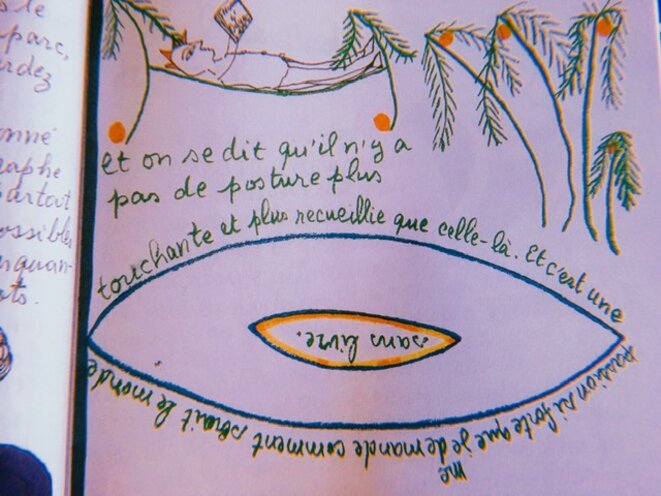 s le
parc,
rdez
onné
raphe
partout
ossibles
ots.
et on se dit qu'il n'y a
pas de posture plus
touchante et plus recueillie que celle-là. Et c'est une
passion si forte que je me demande comment serait le monde
sans livre.